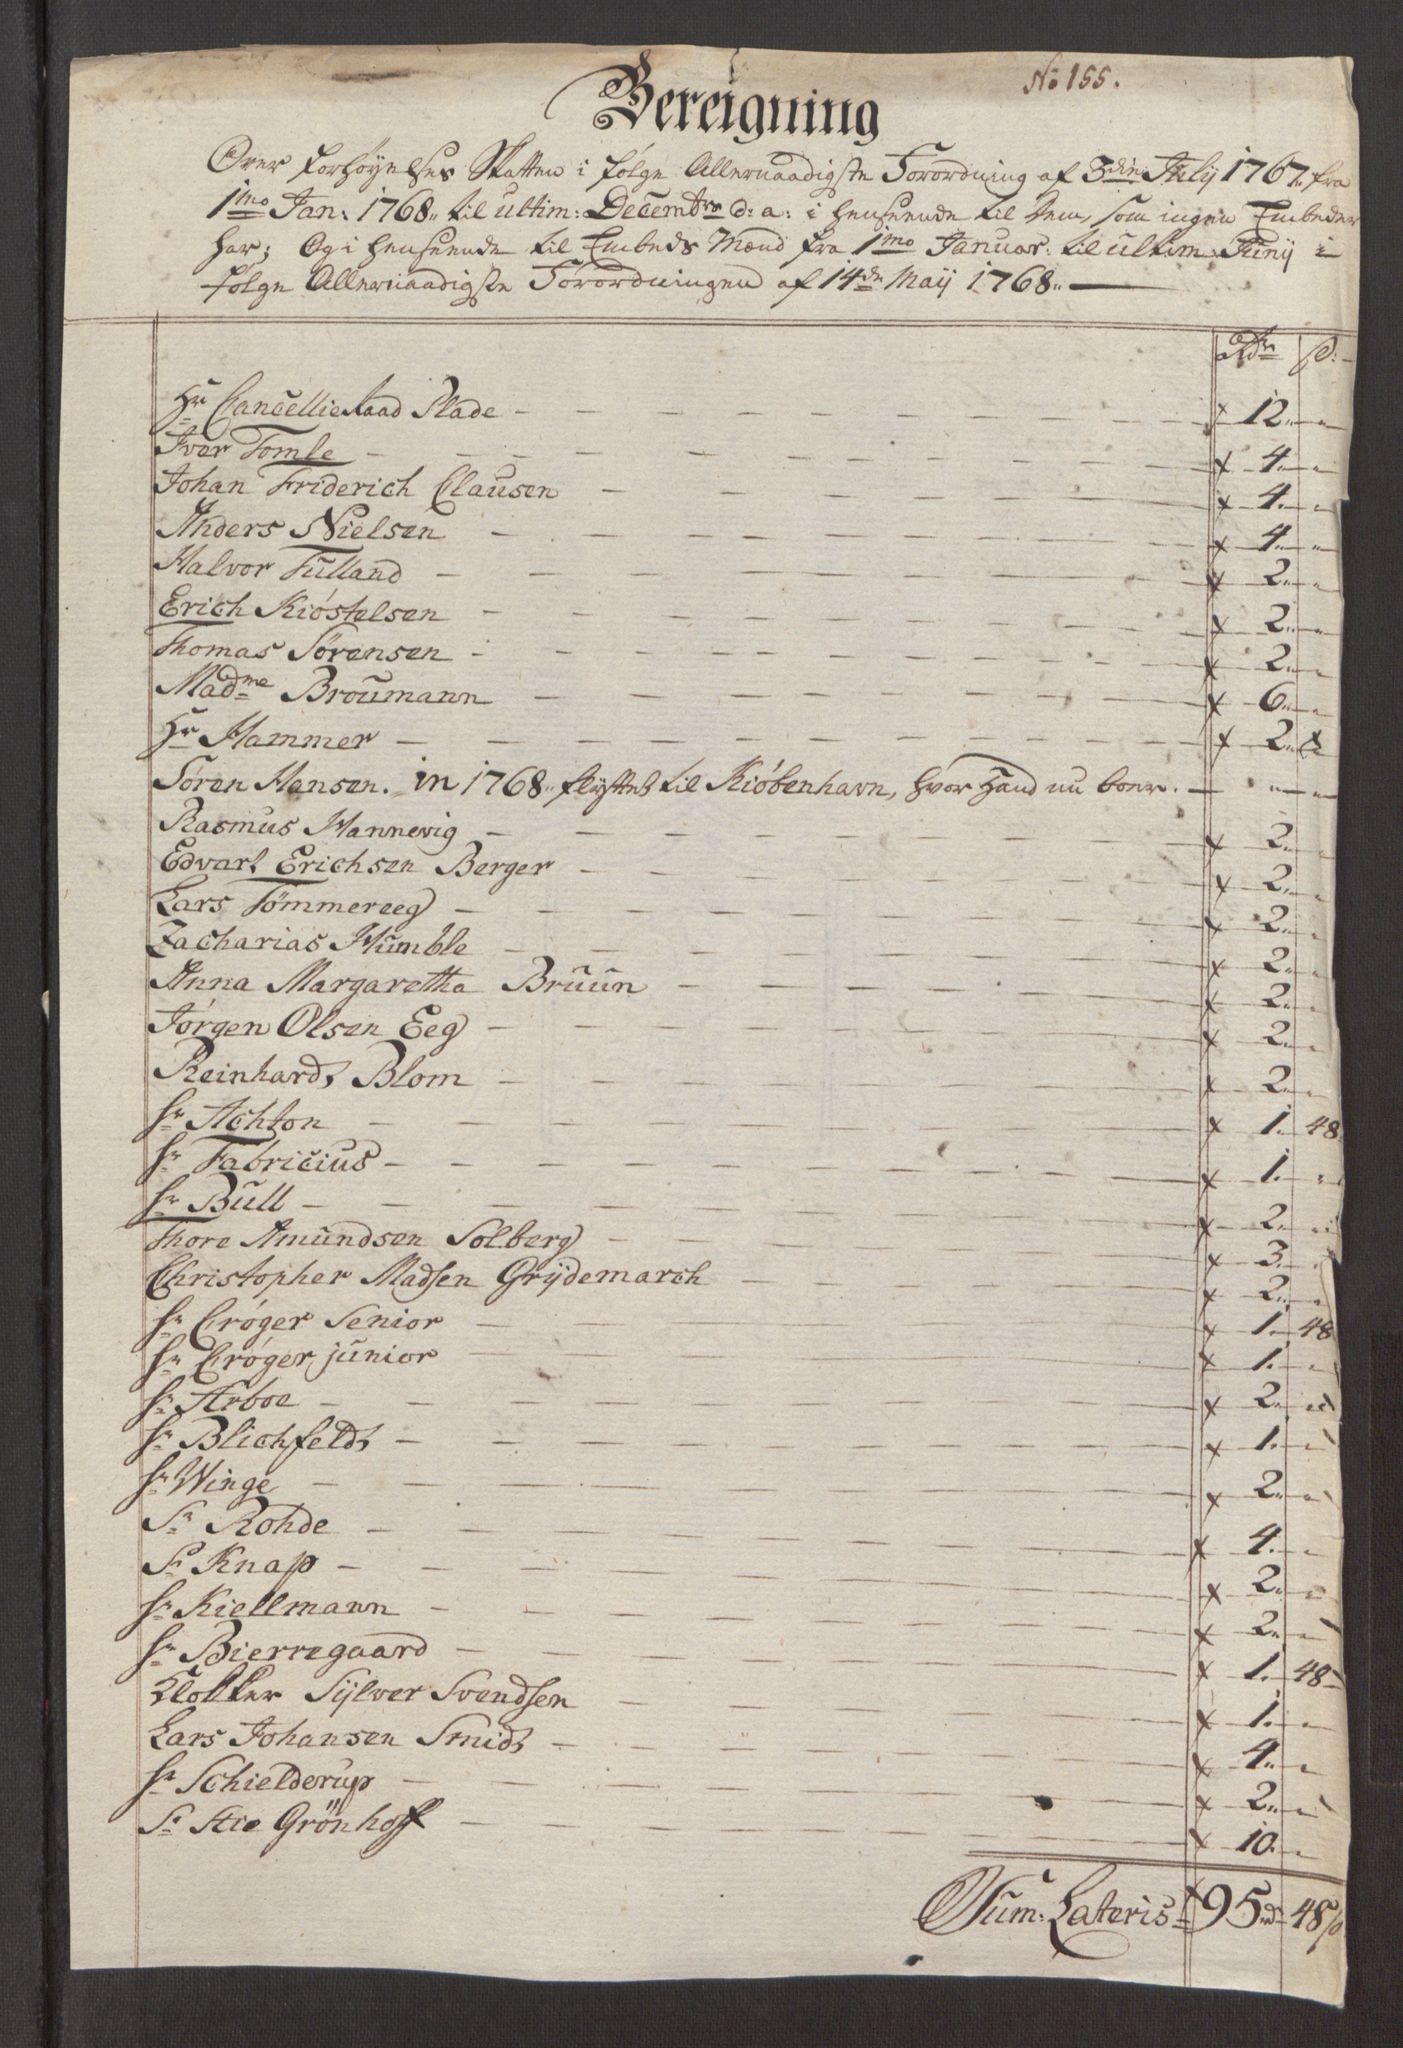 No 155.
Bereigning
Over Forhøyelses Skatten i følge Allernaadigste Forordning af 3die Julij 1767.. fra
1mo Jan: 1768.. til ultim: Decembre d: a: i henseende til dem, som ingen Embeder
har; Og i henseende til Embeds Mænd fra 1mo Januar: til ultim: Junij i
følge Allernaadigste Forordningen af 14de Maij 1768.. —
Rdr ß:
Hr Cancellie Raad Plade - x 12 ..
Iver Tomle - x 4 ..
Johan Friderich Clausen - x 4 ..
Anders Nielsen - x 4 ..
Halvor Fülland - x 2 ..
Erich Kióstelsen - x 2 ..
Thomas Sörensen - x 2 ..
Madme Broümann - x 6 ..
Hr Hammer - x 2 ..
Sören Hansen. in 1768.. flyttet til Kióbenhavn, hvor hand nu boer. - ..
Rasmus Hannevig - x 2 ..
Edvart Erichsen Berger - x 2 ..
Lars Tömmereeg - x 2 ..
Zacharias Humble - x 2 ..
Anna Margaretha Brüün - x 2 ..
Jórgen Olsen Eeg - x 2 ..
Reinhardt Blom - x 2 ..
Sr Achton - x 1. 48
Sr Fabricius - x 1. ..
Sr Büll - x 2 ..
Thore Amundsen Solberg - x 3 ..
Christopher Madsen Grÿdemarch - x 2 ..
Sr Cróger Senior - x 1. 48
Sr Cróger junior - x 1. ..
Sr Arboe - x 2 ..
Sr Blichfeldt - x 1. ..
Sr Winge - x 2 ..
Sr Rohde - x 4. ..
Sr Knap - x 2 ..
Sr Kiellmann - x 2 ..
Sr Bierregaard - x 1. 48
Klokker Sÿlver Svendsen - x 1. ..
Lars Johansen Smidt - x 4 ..
Sr Schielderup - x 2 ..
Sr Grönhoff - x 10. ..
Sum: Lateris x 95 rd 48 ß